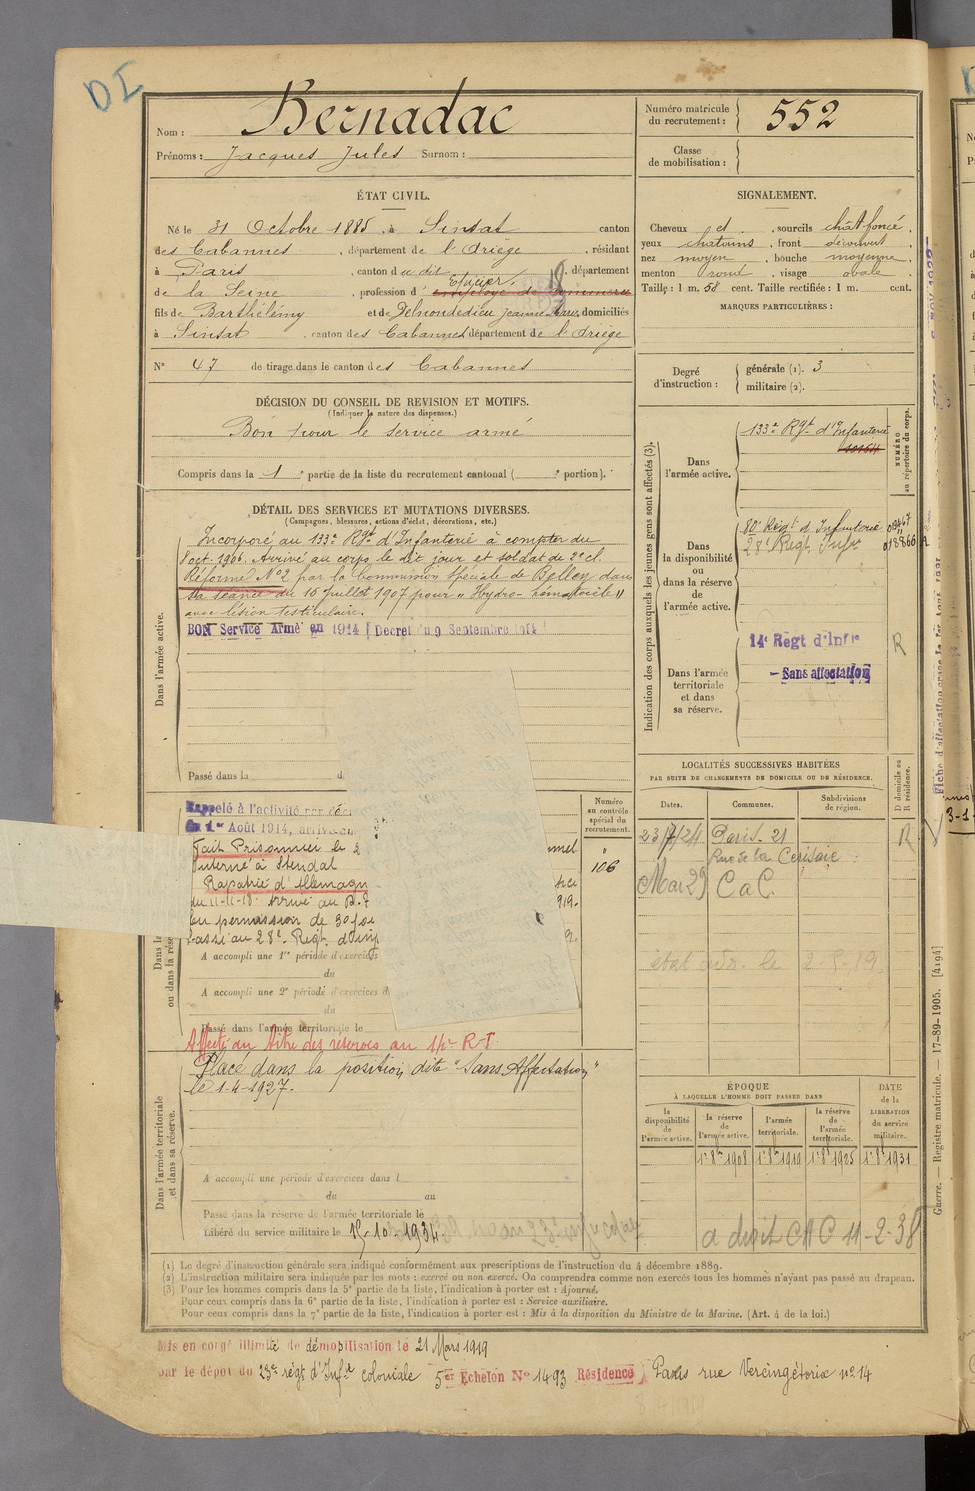 DI
Nom : Bernadac
Prénoms : Jacques Jules Surnom :
Numéro matricule du recrutement : 552
Classe de mobilisation :
ÉTAT CIVIL.
Né le 31 Octobre 1885, à Sinsat canton
des Cabannes, département de l'Ariège, résidant
à Paris, canton du dit, département
Epicier
de la Seine, profession d'employé de commerce
fils de Barthélémy et de Delnondedieu Jeanne Marie, domiciliés
à Sinsat, canton des Cabannes, département de l'Ariège
N° 47 de tirage dans le canton des Cabannes
SIGNALEMENT.
Cheveux et, sourcils chât foncé,
yeux chatains, front découvert,
nez moyen, bouche moyenne,
menton rond, visage ovale
Taille : 1 m. 58 cent. Taille rectifiée : 1 m. cent.
MARQUES PARTICULIÈRES :
Degré d'instruction : générale (1). 3
militaire (2).
DÉCISION DU CONSEIL DE REVISION ET MOTIFS.
(Indiquer la nature des dispenses.)
Bon pour le service armé
Compris dans la 1e partie de la liste du recrutement cantonal ( e portion).
DÉTAIL DES SERVICES ET MUTATIONS DIVERSES.
(Campagnes, blessures, actions d'éclat, décorations, etc.)
Dans l'armée active.
Incorporé au 133e Rgt d'Infanterie à compter du
8 oct. 1906. Arrivé au corps le dit jour et soldat de 2e cl.
Réformé N°2 par la Commission Spéciale de Belley dans
sa séance du 16 Juillet 1907 pour "Hydro-hématocèle"
avec lésion testiculaire.
BON Service Armé en 1914 (Decret du 9 Septembre 1914
Passé dans la d
Indication des corps auxquels les jeunes gens sont affectés (3).
NUMÉRO au répertoire du corps.
Dans l'armée active.
133e Rgt d'Infanterie
Dans la disponibilité ou dans la réserve de l'armée active.
80e Régt d'Infanterie
28e Régt Infie
Dans l'armée territoriale et dans sa réserve.
14e Regt d'Infie R
- Sans affectation
LOCALITÉS SUCCESSIVES HABITÉES
PAR SUITE DE CHANGEMENTS DE DOMICILE OU DE RÉSIDENCE.
Dates. Communes. Subdivisions de région. D domicile ou R résidence.
Paris. 21 R
Rue de la Cerisaie
Mai 29 CaC
2-8-19
Numéro au contrôle spécial du recrutement.
106
Rappelé à l'activité par déc
du 1er Août 1914, arrivé au
Fait Prisonnier le 2
Interné à Stendal
Rapatrié d'Allemagn
du 11-11-18. Arrivé au
En permission de 30 jou
Passé au 28e Regt. d'Inf
A accompli une 1re période d'exercices
du
A accompli une 2e période d'exercices d
du
Passé dans l'armée territoriale le
Affecté au titre des réserves au 14e R.I.
Dans l'armée territoriale et dans sa réserve.
Placé dans la position dite "Sans Affectation"
le 1-4-1927.
A accompli une période d'exercices dans l
du au
Passé dans la réserve de l'armée territoriale le
Libéré du service militaire le 15-10-1934.
ÉPOQUE
À LAQUELLE L'HOMME DOIT PASSER DANS
DATE de la LIBÉRATION du service militaire.
la disponibilité de l'armée active.
la réserve de l'armée active.
l'armée territoriale.
la réserve de l'armée territoriale.
1er 8bre 1908 1er 8bre 1919 1er 8bre 1925 1er 8bre 1931
a droit CAC 11-2-38
(1) Le degré d'instruction générale sera indiqué conformément aux prescriptions de l'instruction du 4 décembre 1889.
(2) L'instruction militaire sera indiquée par les mots : exercé ou non exercé. On comprendra comme non exercés tous les hommes n'ayant pas passé au drapeau.
(3) Pour les hommes compris dans la 5e partie de la liste, l'indication à porter est : Ajourné.
Pour ceux compris dans la 6e partie de la liste, l'indication à porter est : Service auxiliaire.
Pour ceux compris dans la 7e partie de la liste, l'indication à porter est : Mis à la disposition du Ministre de la Marine. (Art. 4 de la loi.)
Mis en congé illimité de démobilisation le 21 Mars 1919
par le dépot du 23e régt d'Infie coloniale 5er Echelon N° 1493 Résidence) Paris rue Vercingétorix n° 14
Guerre. — Registre matricule. — 17-89-1905. [4194]